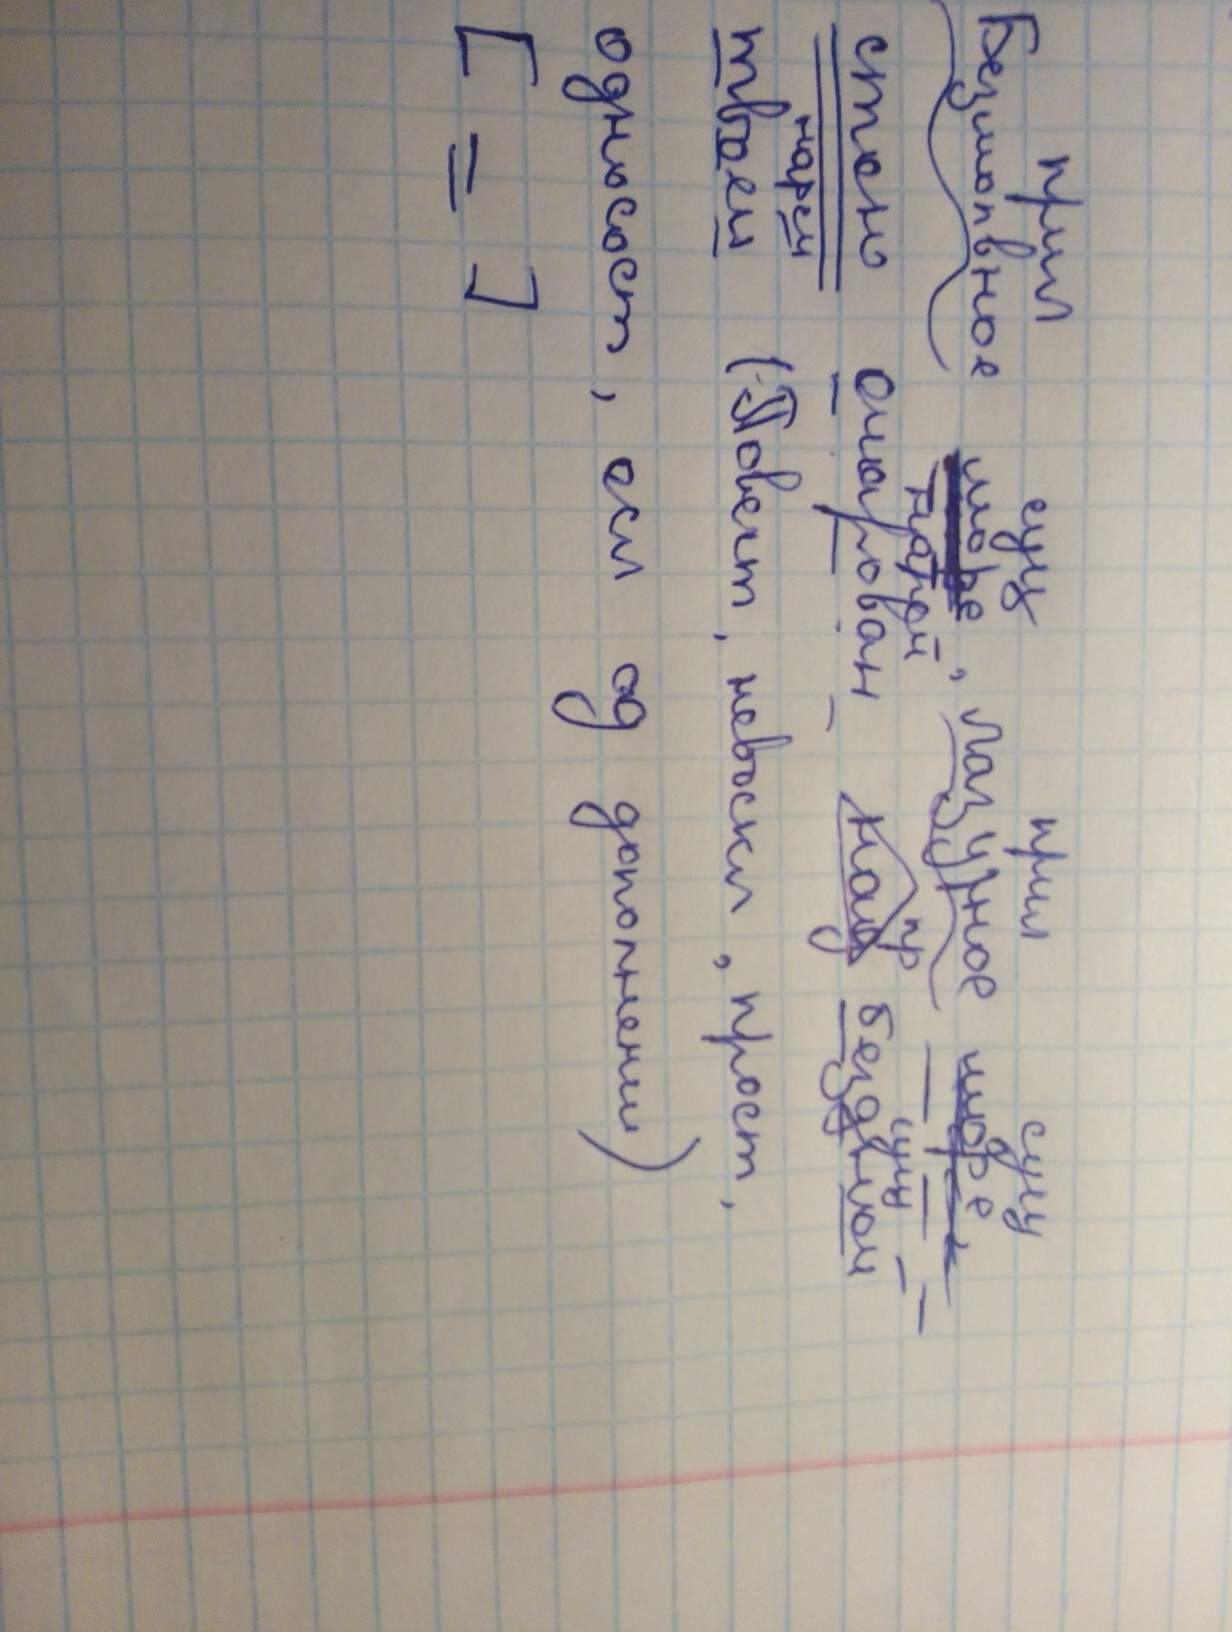 прил сущ прил сущ
Безмолвное море, лазурное море
нареч пр сущ
стою очарован над бездной
нареч
твоей (Повест, невоскл, прост,
односост, осл од дополнени)
[ = ]